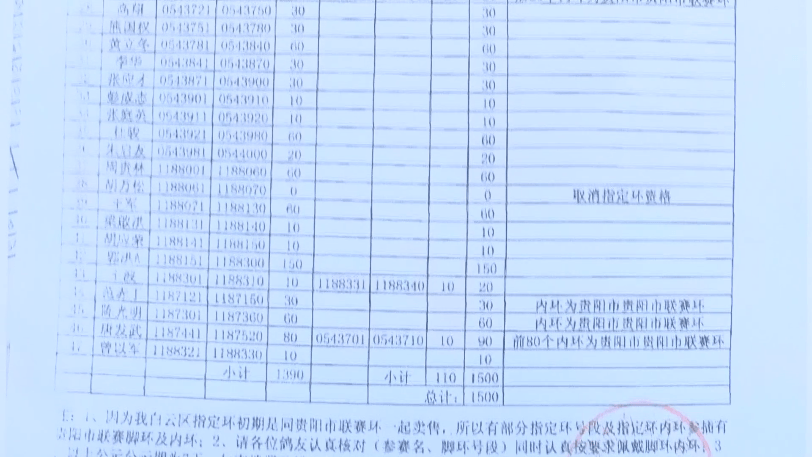 0543721 0543750 30 30
熊国权 0543751 0543780 30 30
黄立冬 0543781 0543840 60 60
李华 0543841 0543870 30 30
张应才 0543871 0543900 30 30
0543901 0543910 10 10
张庭英 0543911 0543920 10 10
杜骏 0543921 0543980 60 60
0543981 0544000 20 20
周贵林 1188001 1188060 60 60
胡万松 1188061 1188070 0 0 取消指定环资格
王军 1188071 1188130 60 60
梁敬洪 1188131 1188140 10 10
胡应黎 1188141 1188150 10 10
1188151 1188300 150 150
1188301 1188310 10 1188331 1188340 10 20
1187121 1187150 30 30 内环为贵阳市贵阳市联赛环
陈光明 1187301 1187360 60 60 内环为贵阳市贵阳市联赛环
唐发武 1187441 1187520 80 0543701 0543710 10 90 前80个内环为贵阳市贵阳市联赛环
曾以军 1188321 1188330 10 10
小计 1390 小计 110 1500
总计: 1500
1、因为我白云区指定环初期是同贵阳市联赛环一起卖售，所以有部分指定环号段及指定环内环参插有
贵阳市联赛脚环及内环；2、请各位鸽友认真核对（参赛名、脚环号段）同时认真按要求佩戴脚环内环；3